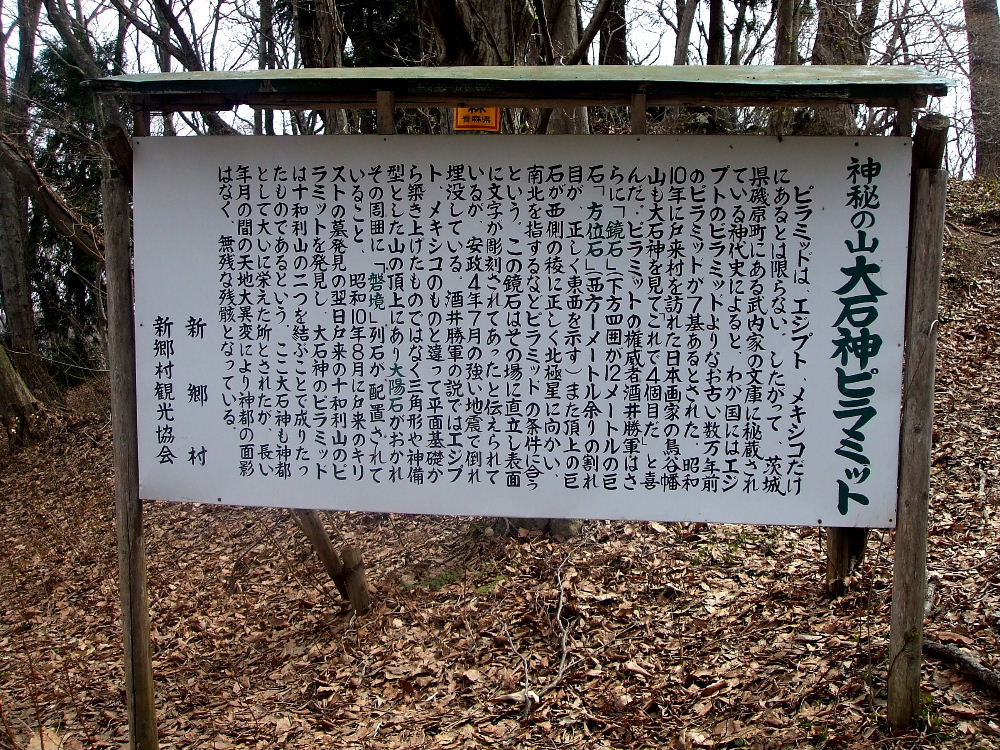 神秘の山大石神ピラミット
ピラミッドは、エジプト、メキシコだけ
にあるとは限らない。したがって、茨城
県磯原町にある武内家の文庫に秘蔵され
ている神代史によると、わが国にはエジ
プトのピラミッドよりなお古い数万年前
のピラミットが7基あるとされた。昭和
10年に戸来村を訪れた日本画家の鳥谷幡
山も大石神を見てこれで4個目だ。と喜
んだ。ピラミットの権威者酒井勝軍はさ
らに「鏡石」(下方四囲が12メートルの巨
石「方位石」(西方一メートル余りの割れ
目が、正しく東西を示す)また頂上の巨
石が西側の稜に正しく北極星に向かい、
南北を指するなどピラミッドの条件に合う
という。この鏡石はその場に直立し表面
に文字が彫刻されてあったと伝えられて
いるが、安政4年7月の強い地震で倒れ
埋没している。酒井勝軍の説ではエジプ
ト、メキシコのものと違って平面基礎か
ら築き上げたものではなく三角形や神備
型とした山の頂上にあり太陽石がおかれ
その周囲に「磐境」列石が配置されて
いること、昭和10年8月に戸来のキリ
ストの墓発見の翌日戸来の十和利山のピ
ラミットを発見し、大石神のピラミッド
は十和利山の二つを結ぶことで成りたっ
たものであるという。ここ大石神も神都
として大いに栄えた所とされたが、長い
年月の間の天地大異変により神都の面影
はなく、無残な残骸となっている。
新郷村
新郷村観光協会
青森県